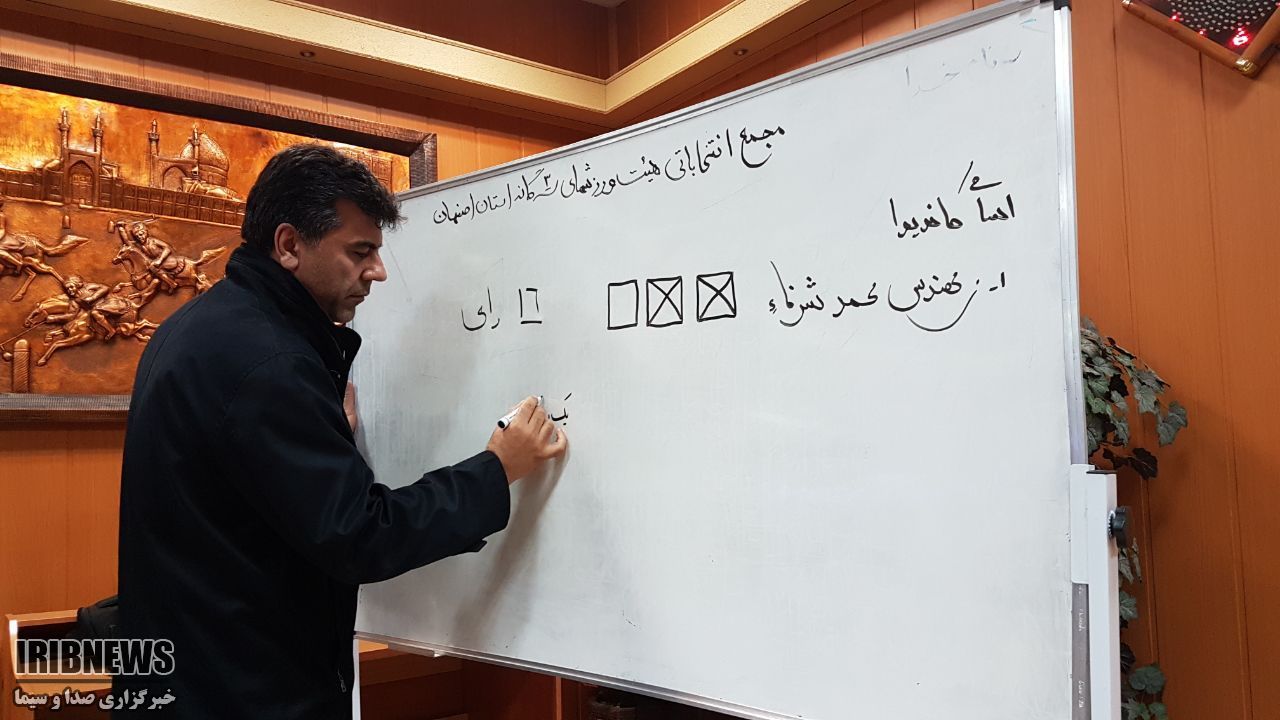 به نام خدا
مجمع انتخاباتی هیئت ورزشهای سه گانه استان اصفهان
اسامی کاندیدا
۱- مهندس محمد
۱۶ رای
یک
IRIBNEWS
خبرگزاری صدا و سیما